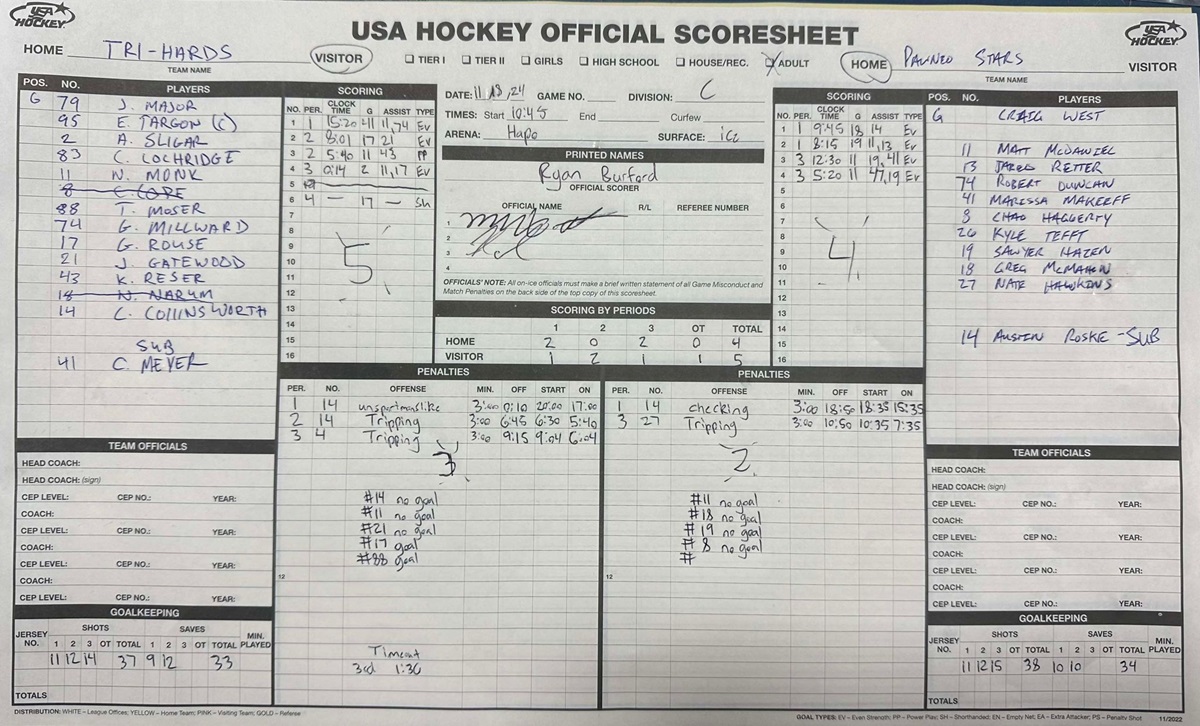 USA HOCKEY OFFICIAL SCORESHEET
USA HOCKEY
USA HOCKEY
HOME TRI-HARDS VISITOR
TEAM NAME
☐ TIER I ☐ TIER II ☐ GIRLS ☐ HIGH SCHOOL ☐ HOUSE/REC. ☒ ADULT
HOME PAWNED STARS VISITOR
TEAM NAME
POS. NO. PLAYERS
G 79 J. MAJOR
95 E. TARGON (C)
2 A. SLIGAR
83 C. LOCHRIDGE
11 N. MONK
8 C. CORE
88 T. MOSER
74 G. MILLWARD
17 G. ROUSE
21 J. GATEWOOD
43 K. RESER
18 N. NARUM
14 C. COLLINSWORTH
SUB
41 C. MEYER
SCORING
NO. PER. CLOCK TIME G ASSIST TYPE
1 1 15:20 41 11,74 Ev
2 2 8:01 17 21 Ev
3 2 5:40 11 43 PP
4 3 0:14 2 11,17 Ev
5
6 4 – 17 – Sh
7
8
9
10
11
12
13
14
15
16
5
DATE: 11/13/24 GAME NO. DIVISION: C
TIMES: Start 10:45 End Curfew
ARENA: Hapo SURFACE: ice
PRINTED NAMES
Ryan Burford
OFFICIAL SCORER
OFFICIAL NAME R/L REFEREE NUMBER
1
2
3
4
OFFICIALS' NOTE: All on-ice officials must make a brief written statement of all Game Misconduct and
Match Penalties on the back side of the top copy of this scoresheet.
SCORING BY PERIODS
1 2 3 OT TOTAL
HOME 2 0 2 0 4
VISITOR 1 2 1 1 5
SCORING
NO. PER. CLOCK TIME G ASSIST TYPE
1 1 9:45 18 14 Ev
2 1 8:15 19 11,13 Ev
3 3 12:30 11 19,41 Ev
4 3 5:20 11 47,19 Ev
5
6
7
8
9
10
11
12
13
14
15
16
4
POS. NO. PLAYERS
G CRAIG WEST
11 MATT MCDANIEL
13 JARED RETTER
74 ROBERT DUNCAN
41 MARESSA MAKEEFF
8 CHAD HAGGERTY
26 KYLE TEFFT
19 SAWYER HAZEN
18 GREG MCMAHON
27 NATE HAWKINS
14 AUSTIN ROSKE - SUB
PENALTIES
PER. NO. OFFENSE MIN. OFF START ON
1 14 unsportmanslike 3:00 0:10 20:00 17:00
2 14 Tripping 3:00 6:45 6:30 5:40
3 4 Tripping 3:00 9:15 9:04 6:04
3
#14 no goal
#11 no goal
#21 no goal
#17 goal
#88 goal
12
Timeout
3rd 1:36
PENALTIES
PER. NO. OFFENSE MIN. OFF START ON
1 14 checking 3:00 18:50 18:35 15:35
3 27 Tripping 3:00 10:50 10:35 7:35
2
#11 no goal
#18 no goal
#19 no goal
#8 no goal
#
12
TEAM OFFICIALS
HEAD COACH:
HEAD COACH: (sign)
CEP LEVEL: CEP NO.: YEAR:
COACH:
CEP LEVEL: CEP NO.: YEAR:
COACH:
CEP LEVEL: CEP NO.: YEAR:
COACH:
CEP LEVEL: CEP NO.: YEAR:
GOALKEEPING
JERSEY NO. SHOTS 1 2 3 OT TOTAL SAVES 1 2 3 OT TOTAL MIN. PLAYED
11 12 14 37 9 12 33
TOTALS
TEAM OFFICIALS
HEAD COACH:
HEAD COACH: (sign)
CEP LEVEL: CEP NO.: YEAR:
COACH:
CEP LEVEL: CEP NO.: YEAR:
COACH:
CEP LEVEL: CEP NO.: YEAR:
COACH:
CEP LEVEL: CEP NO.: YEAR:
GOALKEEPING
JERSEY NO. SHOTS 1 2 3 OT TOTAL SAVES 1 2 3 OT TOTAL MIN. PLAYED
11 12 15 38 10 10 34
TOTALS
DISTRIBUTION: WHITE – League Offices; YELLOW – Home Team; PINK – Visiting Team; GOLD – Referee
GOAL TYPES: EV – Even Strength; PP – Power Play; SH – Shorthanded; EN – Empty Net; EA – Extra Attacker; PS – Penalty Shot 11/2022